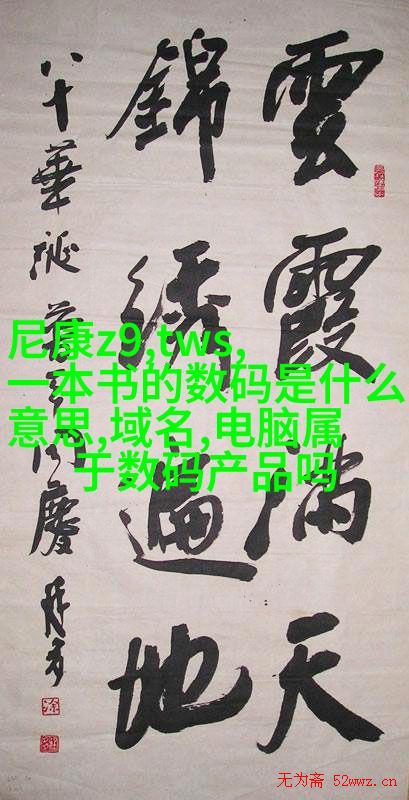 雲霞滿天
錦繡遍地
八十華誕
同慶
尼康z9,tws,
一本书的数码是什么
意思,域名,电脑属
于数码产品吗
无为斋 52wwz.cn